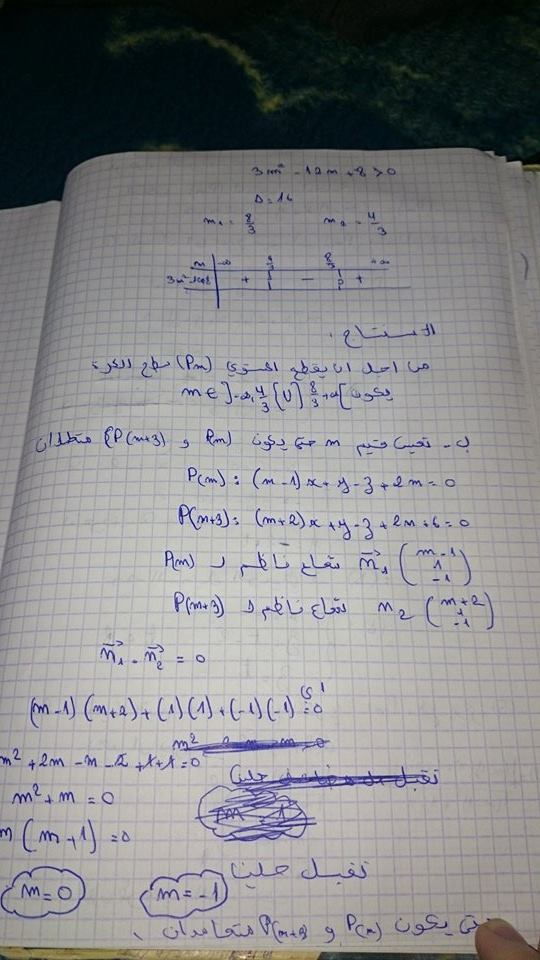 3m² - 12m + 8 > 0
Δ = 16
m₁ = 8/3 m₂ = 4/3
m -∞ 4/3 8/3 +∞
+ - +
الاستنتاج .
من اجل ان يقطع المستوي (Pm) سطح الكرة
يكون m ∈ ]-∞, 4/3[ U ] 8/3, +∞[
ب - تعيين قيم m حتى يكون P(m) و P(m+3)
P(m) : (m-1)x + y - z + 2m = 0
P(m+3) : (m+2)x + y - z + 2m + 6 = 0
n₁ (m-1 1 -1) شعاع ناظم لـ P(m)
n₂ (m+2 1 -1) شعاع ناظم لـ P(m+3)
n₁ . n₂ = 0
(m-1)(m+2) + (1)(1) + (-1)(-1) = 0
m² + 2m - m - 2 + 1 + 1 = 0
m² + m = 0
m(m+1) = 0
تقبل حلين
m = 0 m = -1
حتى يكون P(m) و P(m+3) متعامدان .